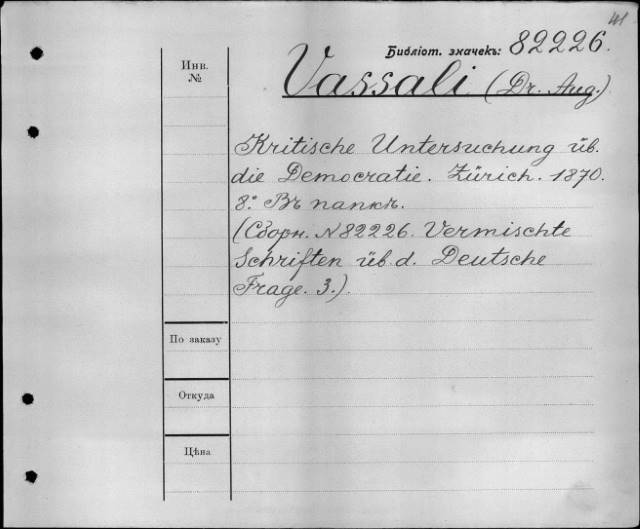 41
Библіот. значекъ: 82226.
Инв.
№
Vassali (Dr. Aug.)
Kritische Untersuchung üb.
die Democratie. Zürich. 1870.
8.° Въ папкѣ.
(Сборн. № 82226. Vermischte
Schriften üb. d. Deutsche
Frage. 3.).
По заказу
Откуда
Цѣна